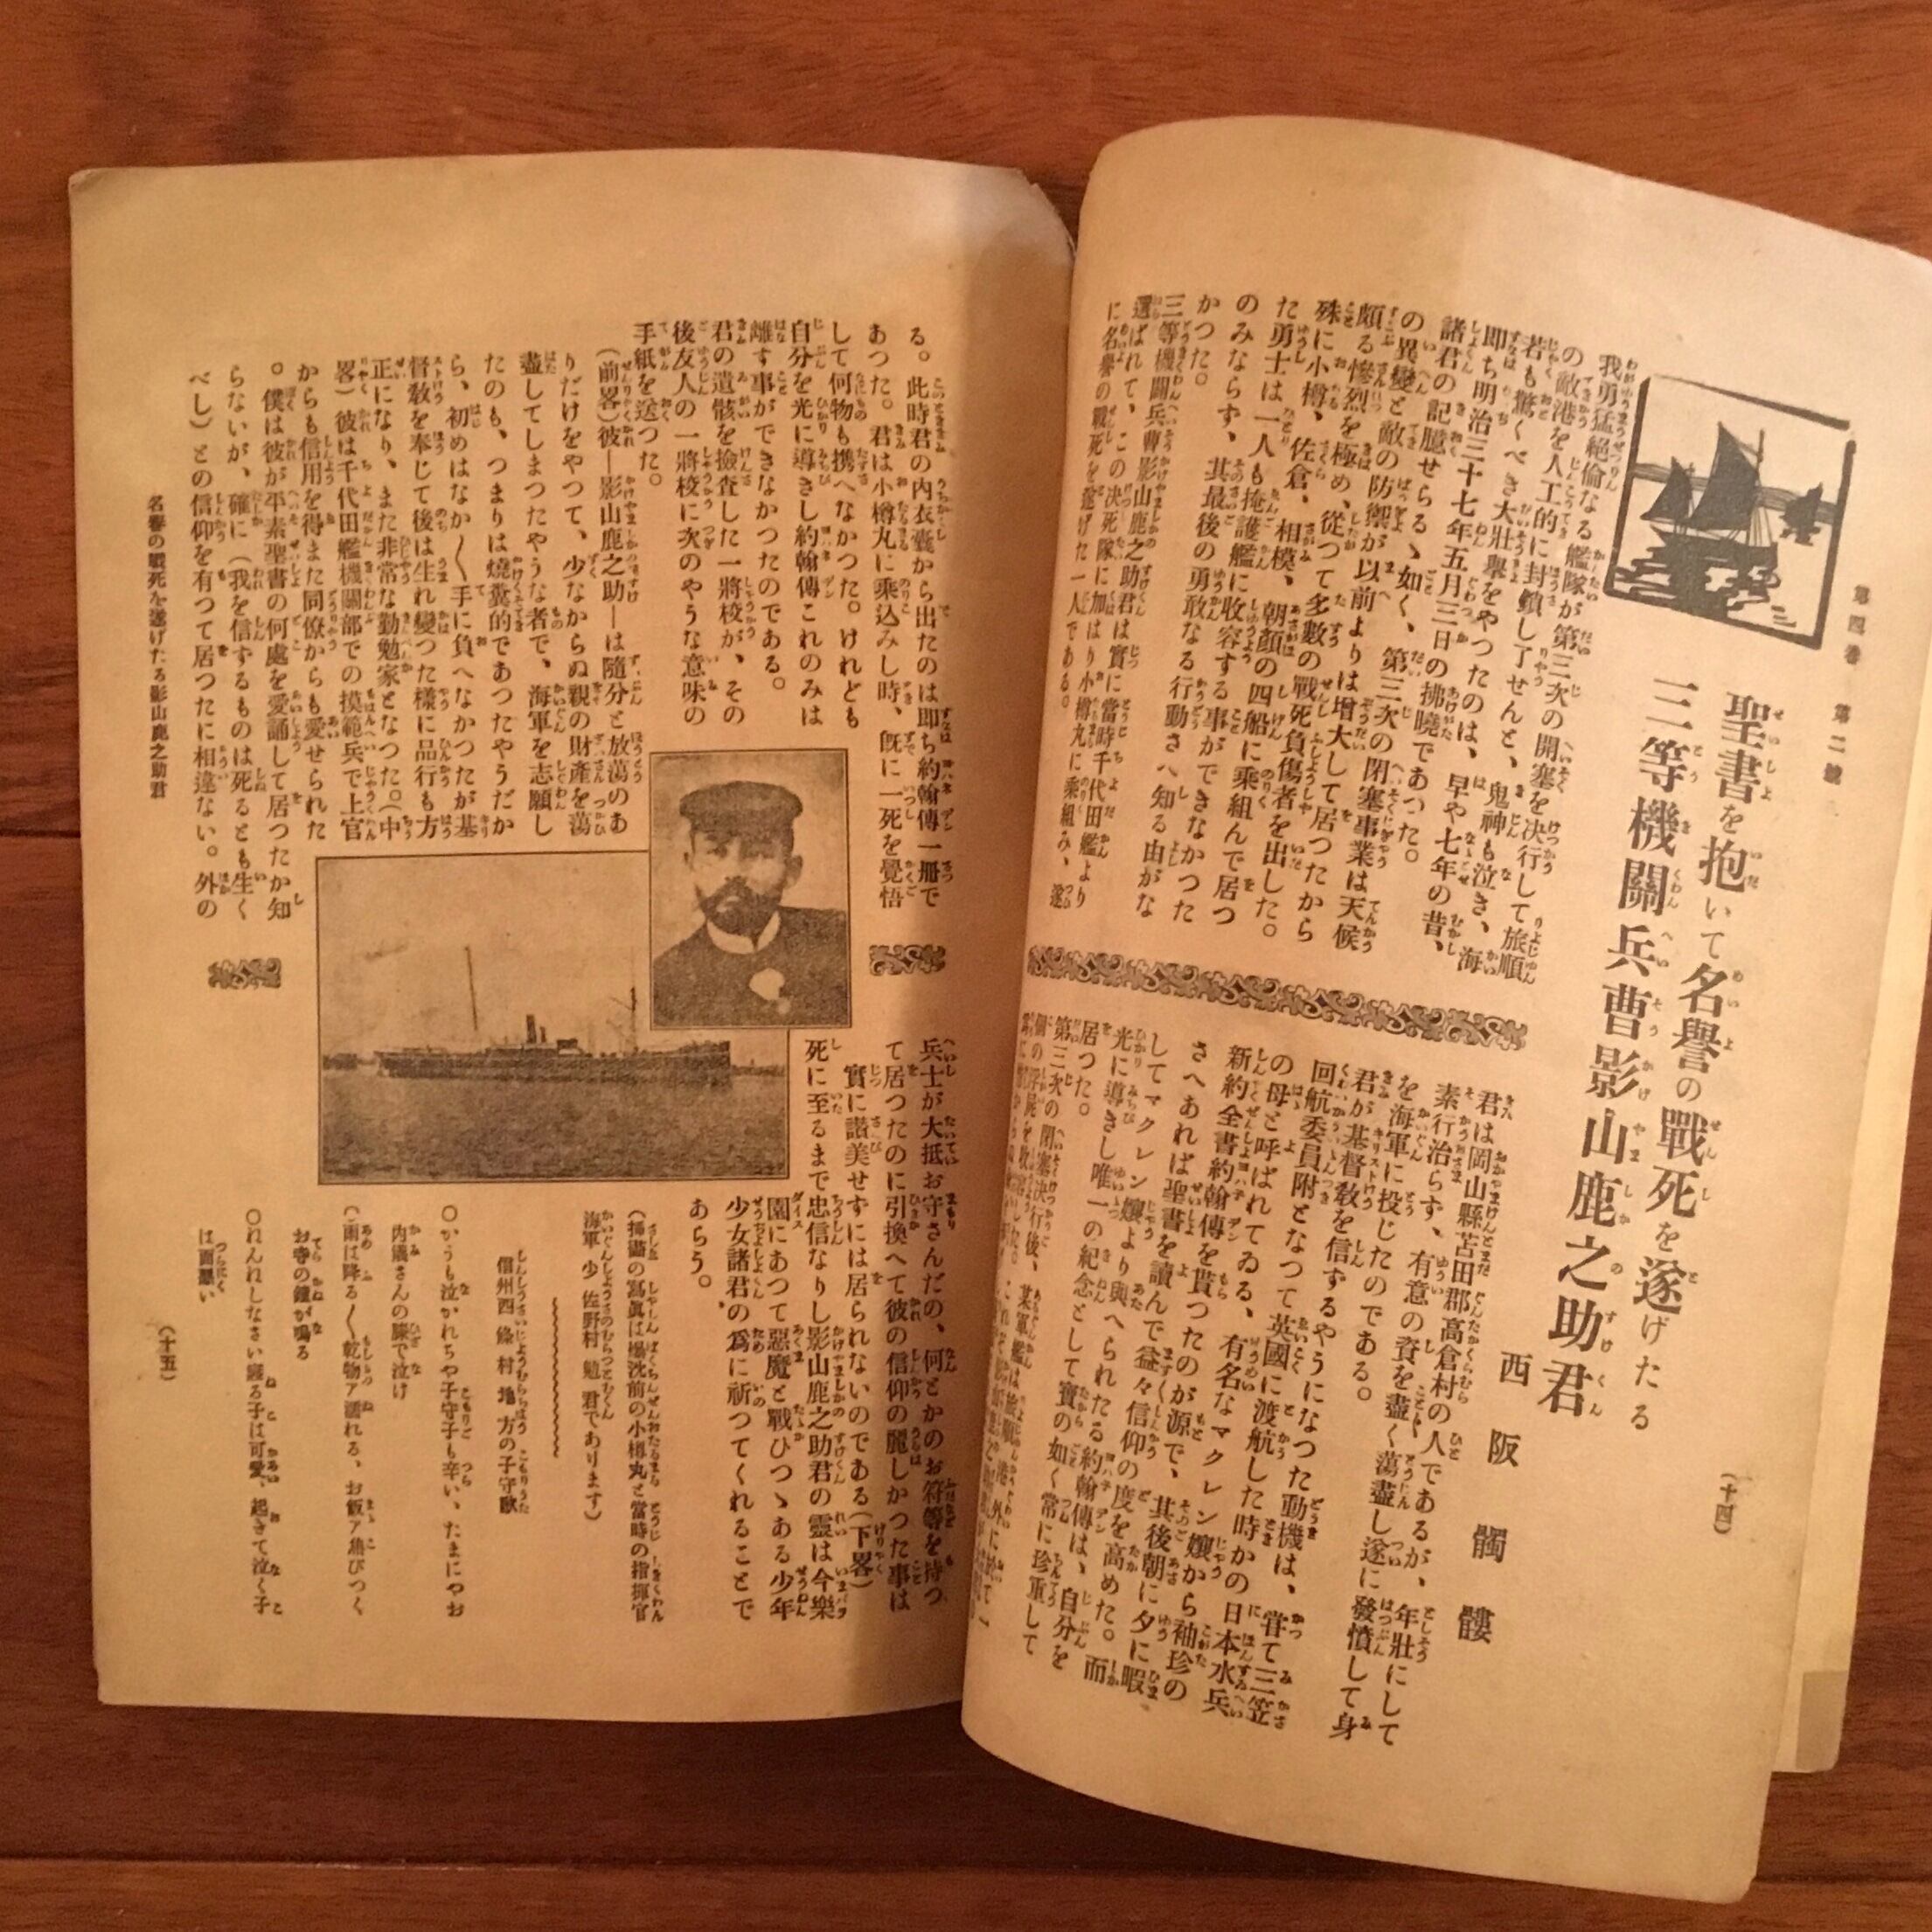 第四卷 第二號
聖書を抱いて名譽の戰死を遂げたる
三等機關兵曹影山鹿之助君
西阪髑髏
(十四)
我勇猛絶倫なる艦隊が第三次の開塞を決行して旅順
の敵港を人工的に封鎖し了せんと、鬼神も泣き、海
若も驚くべき大壯擧をやつたのは、早や七年の昔、
即ち明治三十七年五月三日の拂曉であつた。
諸君の記臆せらるゝ如く、第三次の閉塞事業は天候
の異變と敵の防禦が以前よりは增大して居つたから
頗る慘烈を極め、從つて多數の戰死負傷者を出した。
殊に小樽、佐倉、相模、朝顔の四船に乘組んで居つ
た勇士は一人も掩護艦に收容する事ができなかつた
のみならず、其最後の勇敢なる行動さへ知る由がな
かつた。
三等機關兵曹影山鹿之助君は實に當時千代田艦より
選ばれて、この決死隊に加はり小樽丸に乘組み、遂
に名譽の戰死を遂げた一人である。
君は岡山縣苫田郡高倉村の人であるが、年壯にして
素行治らず、有意の資を盡く蕩盡し遂に發憤して身
を海軍に投じたのである。
君が基督敎を信ずるやうになつた動機は、甞て三笠
回航委員附となつて英國に渡航した時かの日本水兵
の母と呼ばれてゐる、有名なマクレン孃から袖珍の
新約全書約翰傳を貰つたのが源で、其後朝に夕に暇
さへあれば聖書を讀んで益々信仰の度を高めた。而
してマクレン孃より與へられたる約翰傳は、自分を
光に導きし唯一の紀念として寶の如く常に珍重して
居つた。
第三次の閉塞決行後、某軍艦は旅順港外に於て一
る。此時君の内衣嚢から出たのは即ち約翰傳一册で
あつた。君は小樽丸に乘込みし時、既に一死を覺悟
して何物も携へなかつた。けれども
自分を光に導きし約翰傳これのみは
離す事ができなかつたのである。
君の遺骸を撿査した一將校が、その
後友人の一將校に次のやうな意味の
手紙を送つた。
(前畧)彼―影山鹿之助―は隨分と放蕩のあ
りだけをやつて、少なからぬ親の財產を蕩
盡してしまつたやうな者で、海軍を志願し
たのも、つまりは燒糞的であつたやうだか
ら、初めはなか〱手に負へなかつたが基
督敎を奉じて後は生れ變つた樣に品行も方
正になり、また非常な勤勉家となつた。(中
畧)彼は千代田艦機關部での摸範兵で上官
からも信用を得また同僚からも愛せられた
。僕は彼が平素聖書の何處を愛誦して居つたか知
らないが、確に(我を信ずるものは死るとも生く
べし)との信仰を有つて居つたに相違ない。外の
兵士が大抵お守さんだの、何とかのお符等を持つ
て居つたのに引換へて彼の信仰の麗しかつた事は
實に讃美せずには居られないのである(下畧)
死に至るまで忠信なりし影山鹿之助君の靈は今樂
園にあつて惡魔と戰ひつゝある少年
少女諸君の爲に祈つてくれることで
あらう。
(揷畵の寫眞は爆沈前の小樽丸と當時の指揮官
海軍少佐野村勉君であります)
信州四條村地方の子守歌
〇かうも泣かれちや子守子も辛い、たまにやお
内儀さんの膝で泣け
〇雨は降る〱乾物ア濡れる、お飯ア焦びつく
お寺の鐘が鳴る
〇れんれしなさい寢る子は可愛、起きて泣く子
は面憎い
名譽の戰死を遂げたる影山鹿之助君
(十五)